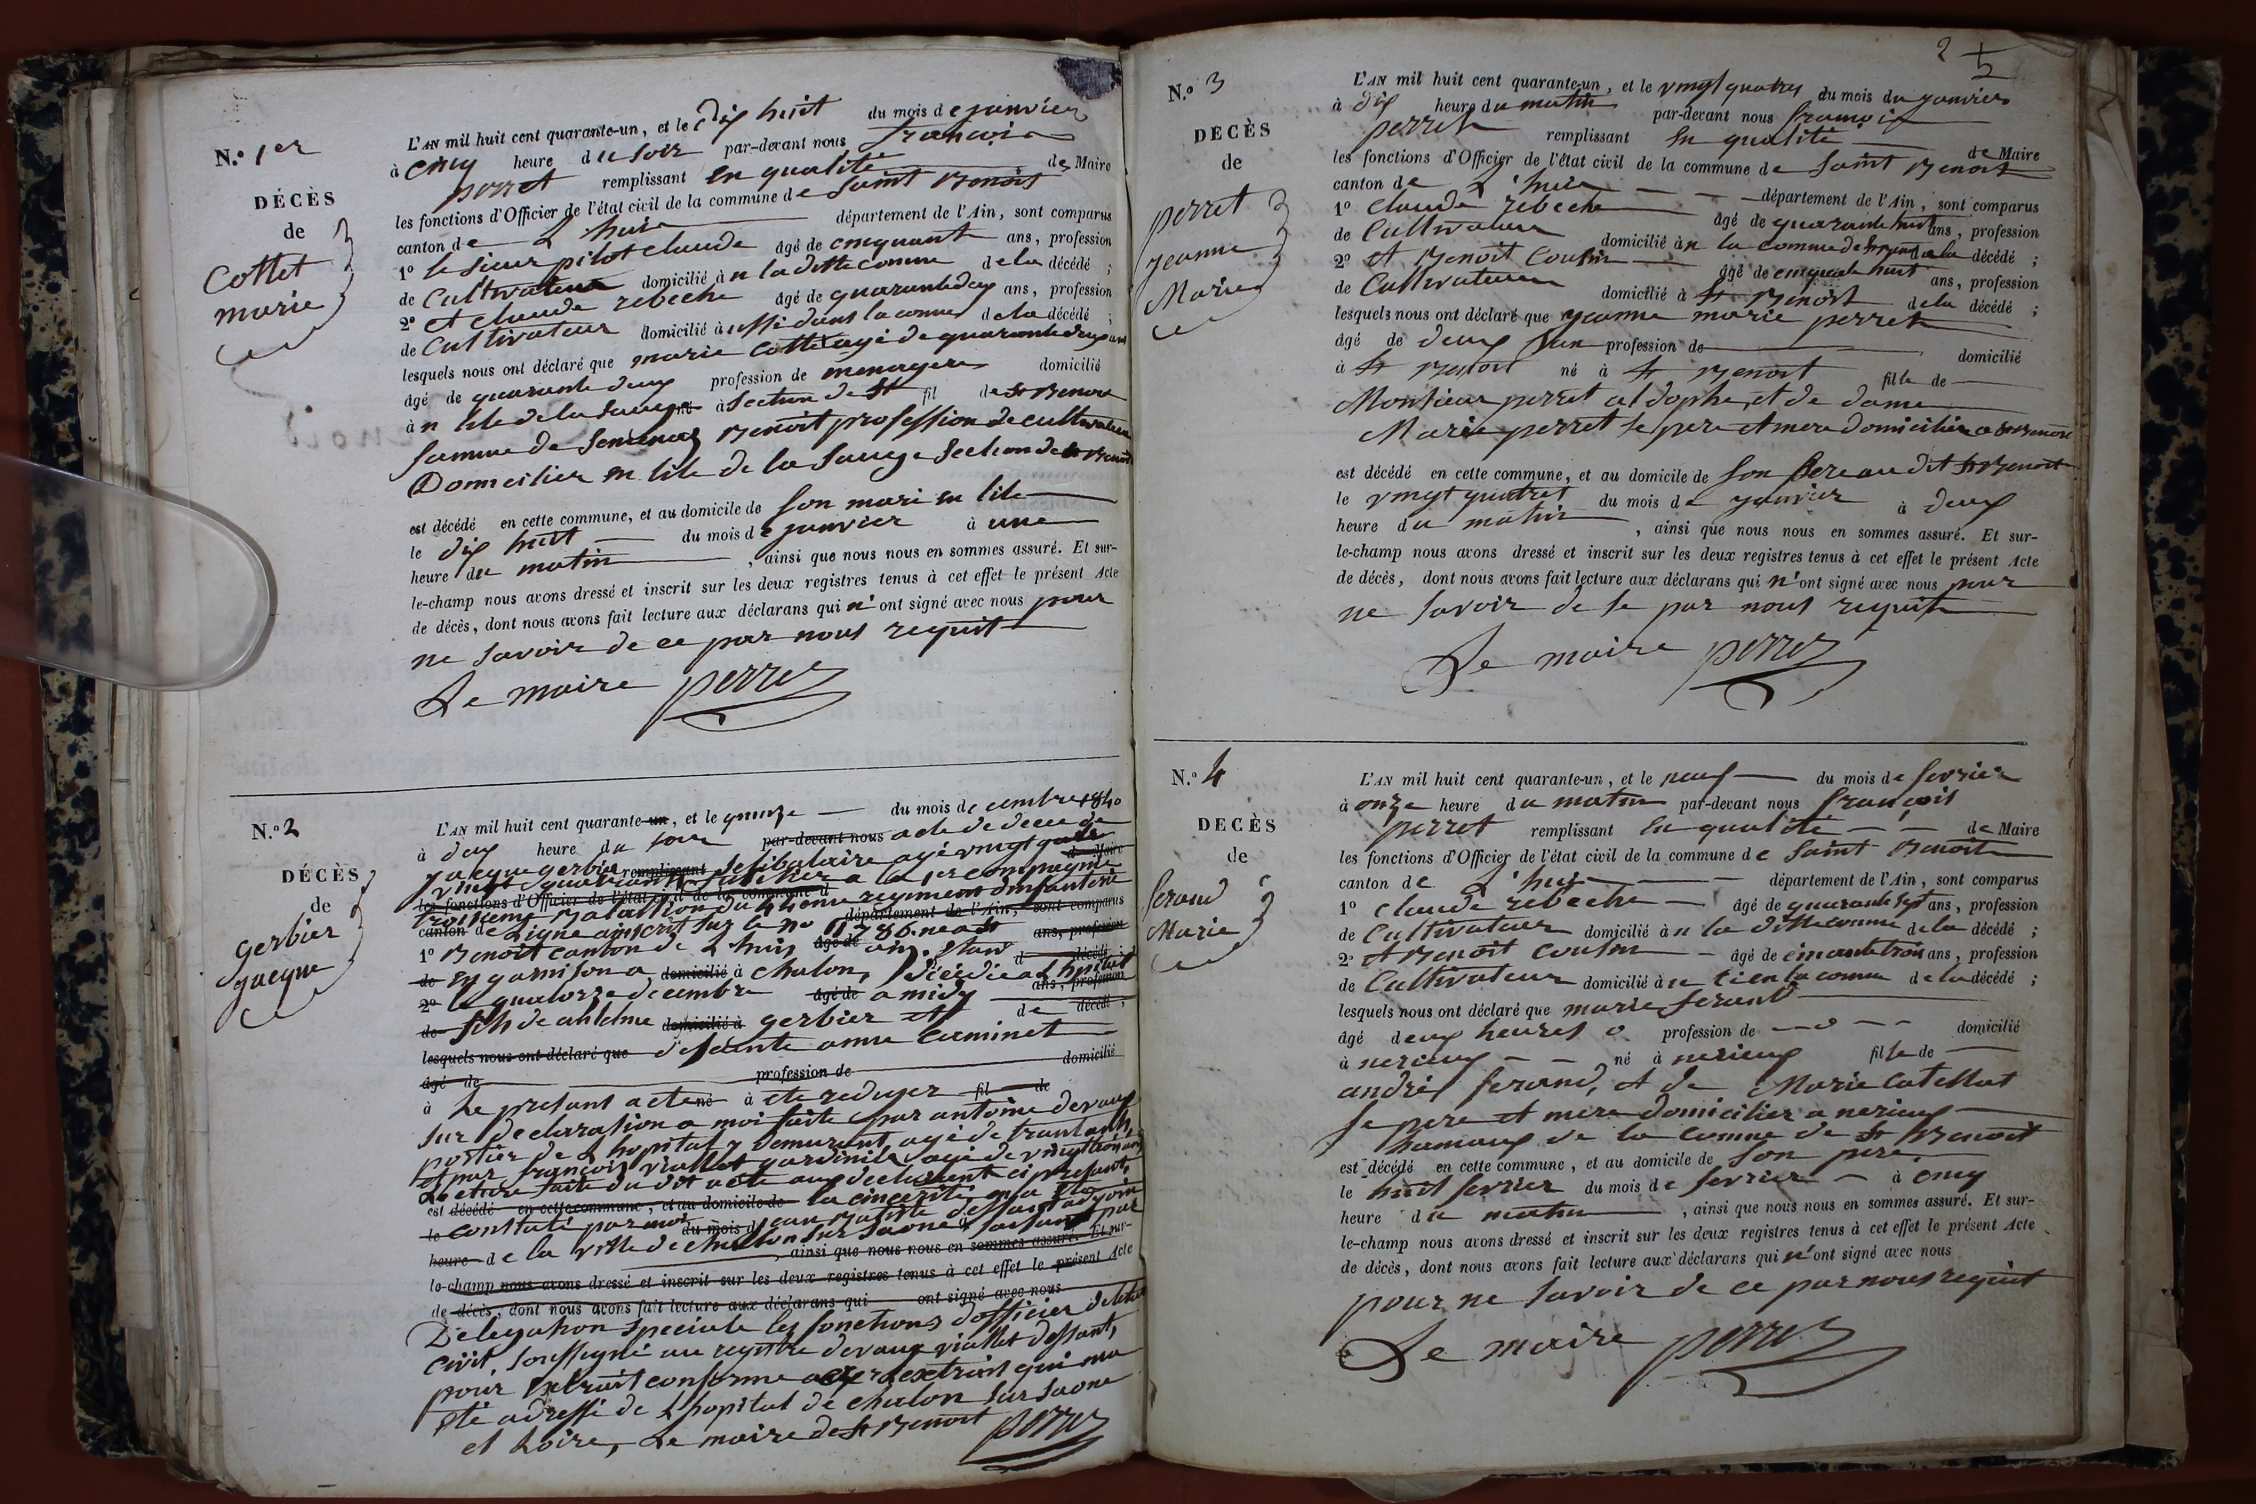 N.º 1er
DÉCÈS
de
Cottet
marie
L'AN mil huit cent quarante-un, et le dix huit du mois de janvier
à cinq heure du soir par-devant nous françois
perret remplissant en qualité de Maire
les fonctions d'Officier de l'état civil de la commune de saint Benoit
canton de L'huis département de l'Ain, sont comparus
1º le sieur pilot claude âgé de cinquante ans, profession
de Cultivateur domicilié à n la ditte comune de la décédé ;
2º et claude rebeche âgé de quarante dex ans, profession
de Cultivateur domicilié à ussi dans la comune de la décédé ;
lesquels nous ont déclaré que marie Cottet agé de quarante deux ans
âgé de quarante deux profession de menagere domicilié
à n lile de la sauge né à section de St fil de St Benoit
famme de Benoit profession de cultivateur
Domicilier en lile de la sauge section de St Benoit
est décédé en cette commune, et au domicile de son mari en lile
le dix huit du mois de janvier à une
heure du matin, ainsi que nous nous en sommes assuré. Et sur-
le-champ nous avons dressé et inscrit sur les deux registres tenus à cet effet le présent Acte
de décès, dont nous avons fait lecture aux déclarans qui n'ont signé avec nous pour
ne savoir de ce par nous requit
Le maire perret
N.º 2
DÉCÈS
de
gerbier
jacque
L'AN mil huit cent quarante-un, et le quinze du mois de cembre 1840
à dex heure du soir par-devant nous acte de decé de
jacque gerbier remplissant selibataire agé vingt quatre de Maire
les fonctions d'Officier de l'état civil de la commune d fusilier a la 1er compagnie
troisieme Batallion du 44ieme regiment d'infanterie
canton de Ligne inscrit sur le no 1786 né a St département de l'Ain, sont comparus
1º Benoit canton de L'huis âgé de ain etant ans, profession
de en garnison a domicilié à chalon, décédé a L'hopital d décédé ;
2º le quatorze decembre âgé de a midy ans, profession
de fils de anthelme domicilié à gerbier et de décédé ;
lesquels nous ont déclaré que defeunte anne Cuminet
âgé de profession de domicilié
à Le presant acte né à ete rediger fil de
sur declaration a moi faite par antoine devaux
portier de L'hopital y demurant, agé de trante
et par françois viallet jardinile agé de vingt trois ans
Lecture faite du dit acte aux declarant ci presant,
est décédé en cette commune, et au domicile de la cincerité en a ete
le constaté par moi du mois d jean Batiste dessant adjoint
heure de la ville de chalon sur saone faisant par, ainsi que nous nous en sommes assuré. Et sur-
le-champ nous avons dressé et inscrit sur les deux registres tenus à cet effet le présent Acte
de décès, dont nous avons fait lecture aux déclarans qui ont signé avec nous
Delegation speciale les fonctions d'officier de letat
civil, soussigné au registre devaux viallet dessant,
pour Extrait conforme a extrait qui ma
eté adressé de L'hopital de chalon sur saone
et Loire, Le maire de St Benoit perret
2
N.º 3
DÉCÈS
de
perret
jeanne
Marie
L'AN mil huit cent quarante-un, et le vingt quatres du mois du janvier
à dix heure du matin par-devant nous françois
perret remplissant en qualité de Maire
les fonctions d'Officier de l'état civil de la commune de saint Benoit
canton de L'huis département de l'Ain, sont comparus
1º claude rebeche âgé de quarante huit ans, profession
de Cultivateur domicilié à n la comune de de la décédé ;
2º et Benoit Coutin âgé de cinquante huit ans, profession
de Cultivateur domicilié à St Benoit de la décédé ;
lesquels nous ont déclaré que jeanne marie perret
âgé de deux an profession de domicilié
à St Benoit né à St Benoit fille de
Monsieur perret aldophe, et de dame
Marie perret se pere et mere domicilier a St Benoit
est décédé en cette commune, et au domicile de son pere au dit St Benoit
le vingt quatres du mois de janvier à deux
heure du matin, ainsi que nous nous en sommes assuré. Et sur-
le-champ nous avons dressé et inscrit sur les deux registres tenus à cet effet le présent Acte
de décès, dont nous avons fait lecture aux déclarans qui n'ont signé avec nous pour
ne savoir de se par nous requit
Le maire perret
N.º 4
DÉCÈS
de
ferand
Marie
L'AN mil huit cent quarante-un, et le neuf du mois de fevrier
à onze heure du matin par-devant nous françois
perret remplissant en qualité de Maire
les fonctions d'Officier de l'état civil de la commune de saint Benoit
canton de L'huis département de l'Ain, sont comparus
1º claude rebeche âgé de quarante sept ans, profession
de Cultivateur domicilié à n la ditte comune de la décédé ;
2º et Benoit Coutin âgé de cincante trois ans, profession
de Cultivateur domicilié à la comune de la décédé ;
lesquels nous ont déclaré que marie ferand
âgé deux heures o profession de o domicilié
à nerieux né à nerieux fille de
andré ferand, et de Marie Catellat
se pere et mere domicilier a nerieux
hamaux de la comune de St Benoit
est décédé en cette commune, et au domicile de son pere
le huit fevrier du mois de fevrier à cinq
heure du matin, ainsi que nous nous en sommes assuré. Et sur-
le-champ nous avons dressé et inscrit sur les deux registres tenus à cet effet le présent Acte
de décès, dont nous avons fait lecture aux déclarans qui n'ont signé avec nous
pour ne savoir de ce par nous requit
Le maire perret